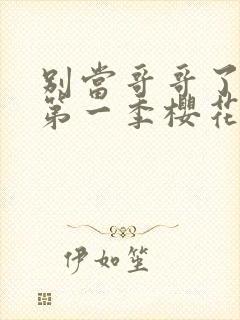 別當哥哥了
第一季櫻花
伊如笙